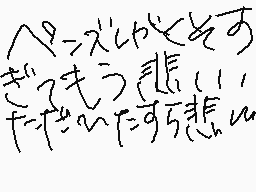 ペンズしがくそす
ぎてもう悲しい
ただひたすら悲しい